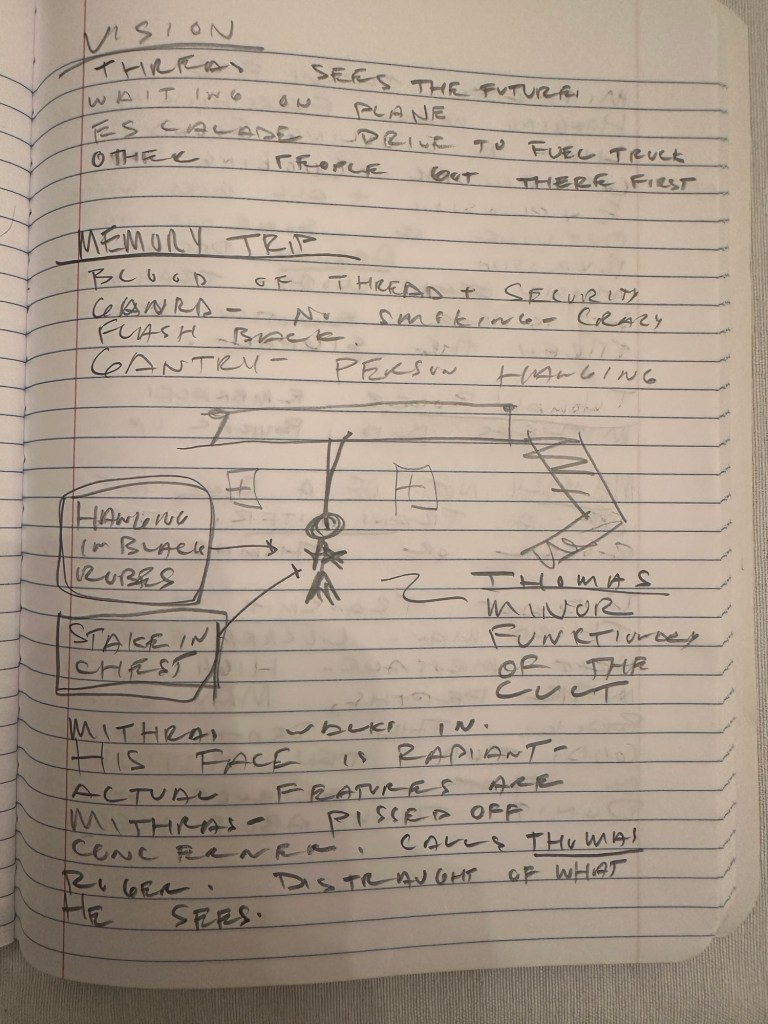 VISION
THREAD SEES THE FUTURE.
WAITING ON PLANE
ESCALADE DRIVE TO FUEL TRUCK
OTHER PEOPLE OUT THERE FIRST
MEMORY TRIP
BLOOD OF THREAD + SECURITY
GANRD - NO SMOKING - CRAZY
FLASH BACK.
GANTRY - PERSON HANGING
HANGING
IN BLACK
ROBES
STAKE IN
CHEST
THOMAS
MINOR
FUNKTIONARY
OF THE
CULT
MITHRAS WALKS IN.
HIS FACE IS RADIANT -
ACTUAL FEATURES ARE
MITHRAS - PISSED OFF
CONCERNER. CALLS THOMAS
ROGER. DISTRAUGHT OF WHAT
HE SEES.